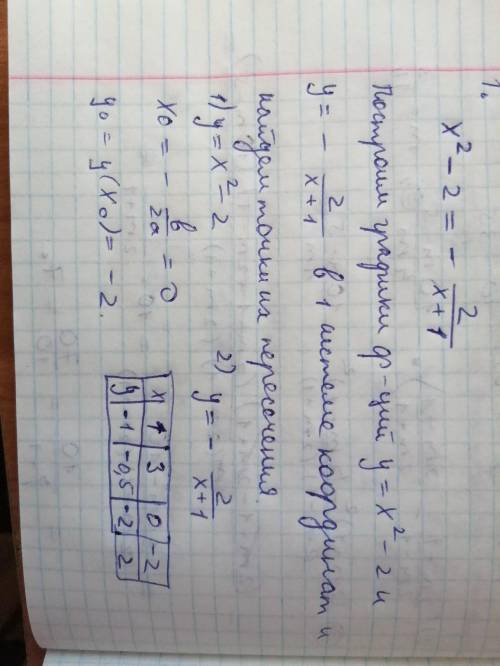 1.
x² - 2 = - 2/(x+1)
Построим графики ф-ций y = x² - 2 и
y = - 2/(x+1) в 1 системе координат и
найдем точки их пересечения.
1) y = x² - 2
x₀ = - b/2a = 0
y₀ = y(x₀) = -2.
2) y = - 2/(x+1)
x 1 3 0 -2
y -1 -0,5 -2 2